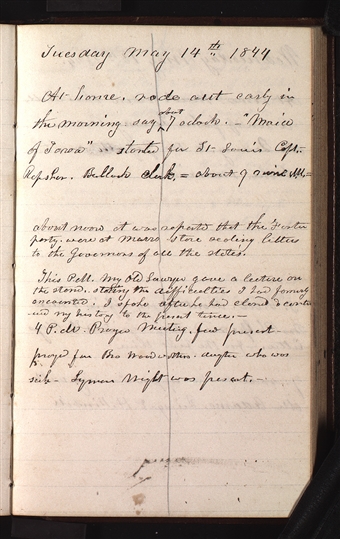 Tuesday May 14th 1844
At home. rode out early in
the morning say about 7 oclock. - "Maid
of Iowa" - started for St- Louis Capt.
Repsher. Bullock clerk, = about 9
about noon it was reported that the Foster
party. were at Marrs Store reading letters
to the Governors of all the states.
This P.M. my Old Lawyer gave a lecture on
the stand. stating the difficulties I had formerly
encountered. I spoke after he had closed & contin
ued my history to the present time. -
4 P.M. Prayer Meeting. few present
prayed for Bro Woodworths daughter who was
sick - Lyman Wight was present. -